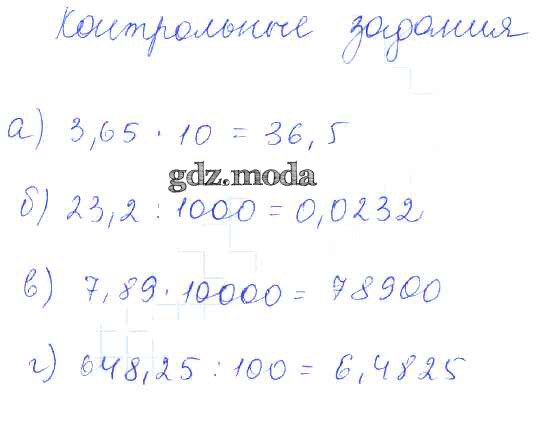 Контрольные задания
а) 3,65 · 10 = 36,5
gdz.moda
б) 23,2 : 1000 = 0,0232
в) 7,89 · 10000 = 78900
г) 648,25 : 100 = 6,4825